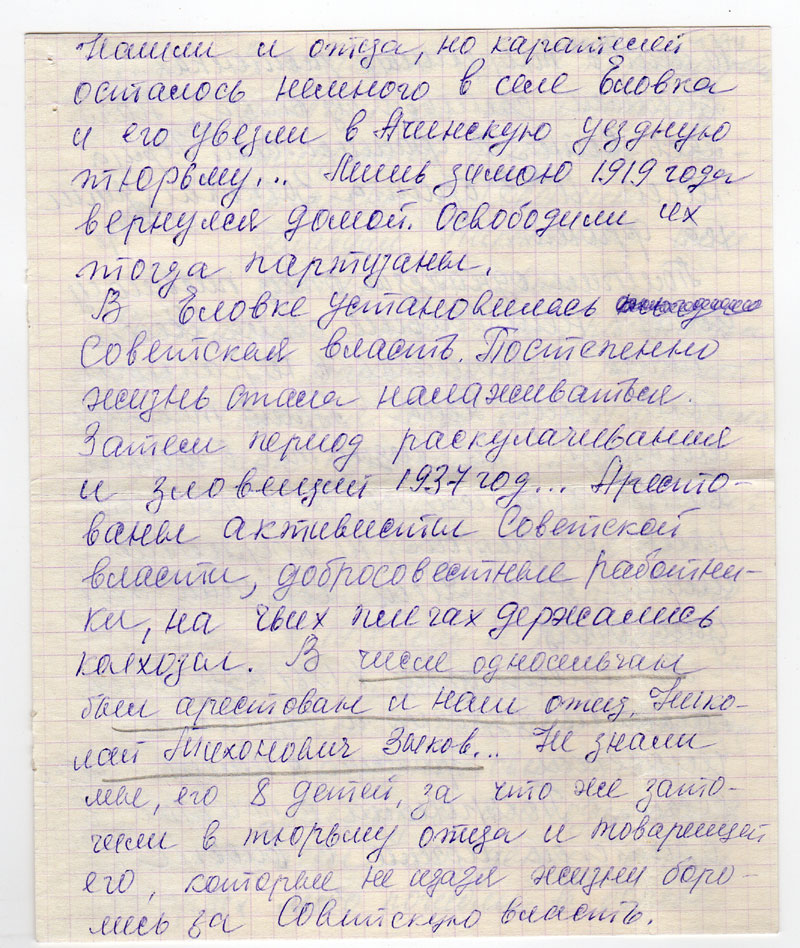 Нашли и отца, но карателей
осталось немного в селе Еловка
и его увезли в Ачинскую уездную
тюрьму... Лишь зимою 1919 года
вернулся домой. Освободили их
тогда партизаны.
В Еловке установилась
Советская власть. Постепенно
жизнь стала налаживаться.
Затем период раскулачивания
и зловещий 1937 год... Аресто-
ваны активисты Советской
власти, добросовестные работни-
ки, на чьих плечах держались
колхозы. В числе односельчан
был арестован и наш отец, Нико-
лай Тихонович Зыков... Не знали
мы, его 8 детей, за что же зато-
чили в тюрьму отца и товарищей
его, которые не щадя жизни боро-
лись за Советскую власть.